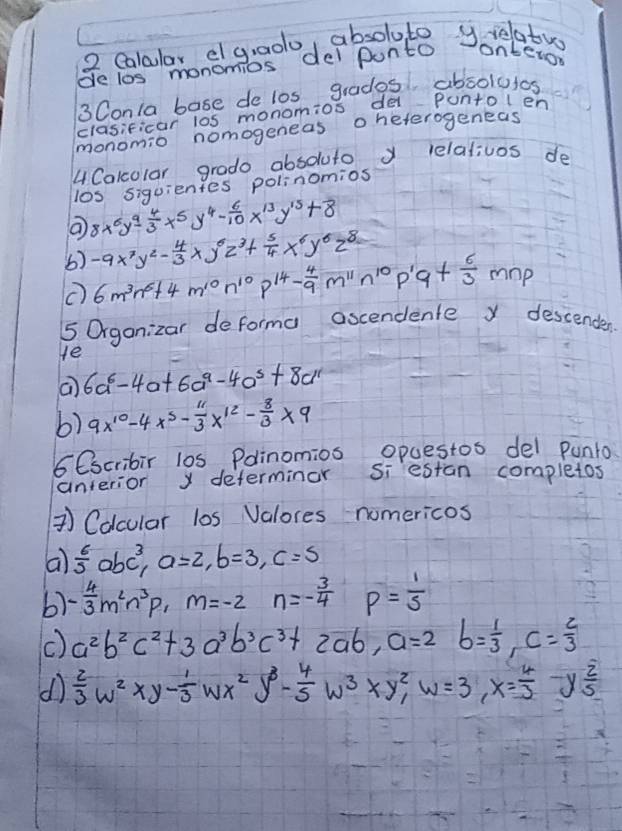 2 Calcular el grado absoluto y relativo
de los monomios del ponto anterior
3 Con la base de los grados absolutos
clasificar los monomios del punto 1 en
monomio homogeneas o heterogeneas
4 Calcular grado absoluto y relativos de
los siguientes polinomios
a) 8x⁶y⁹ - 4/3 x⁵y⁴ - 6/10 x¹³y¹⁵ + 8
b) -9x⁷y² - 4/3 xy⁶z³ + 5/4 x⁶y⁶z⁸
c) 6m³n⁶ + 4m¹⁰n¹⁰p¹⁴ - 4/9 m¹¹n¹⁰p'q + 6/3 mnp
5 Organizar de forma ascendente y descenden.
te
a) 6a⁶ - 4a + 6a⁹ - 4a⁵ + 8a¹¹
b) 9x¹⁰ - 4x⁵ - 11/3 x¹² - 8/3 x9
6 Escribir los Polinomios opuestos del punto
anterior y determinar si estan completos
7) Calcular los Valores numericos
a) 6/5 abc³, a=2, b=3, c=5
b) -4/3 m²n³p, m=-2 n=-3/4 p=1/5
c) a²b²c² + 3a³b³c³ + 2ab, a=2 b=1/3, c=2/3
d) 2/3 w²xy - 1/5 wx²y³ - 4/5 w³xy², w=3, x=4/3 y 2/5